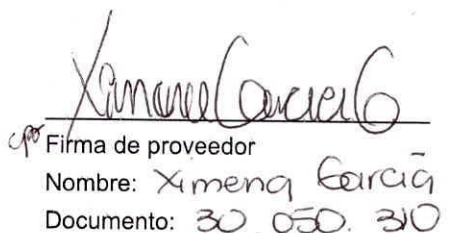 Ximena Garcia G
Firma de proveedor
Nombre: Ximena Garcia
Documento: 30 050. 310